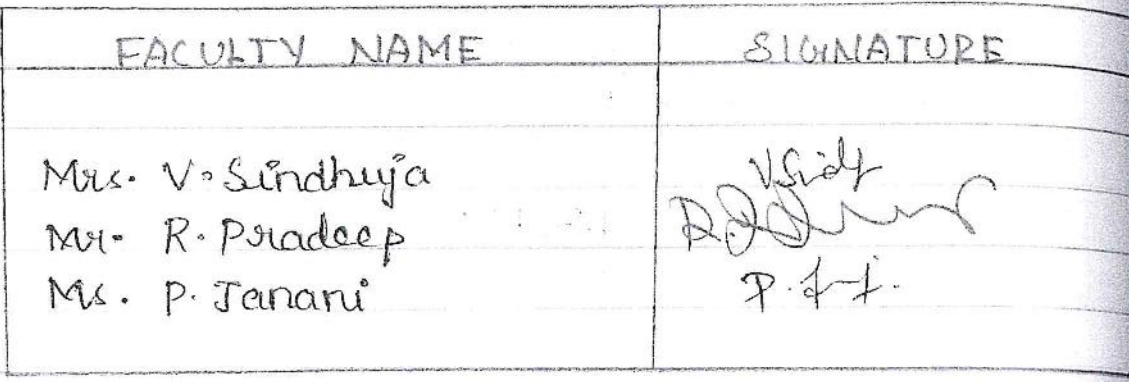 FACULTY NAME SIGNATURE
Mrs. V. Sindhuja
Mr. R. Pradeep
Ms. P. Janani